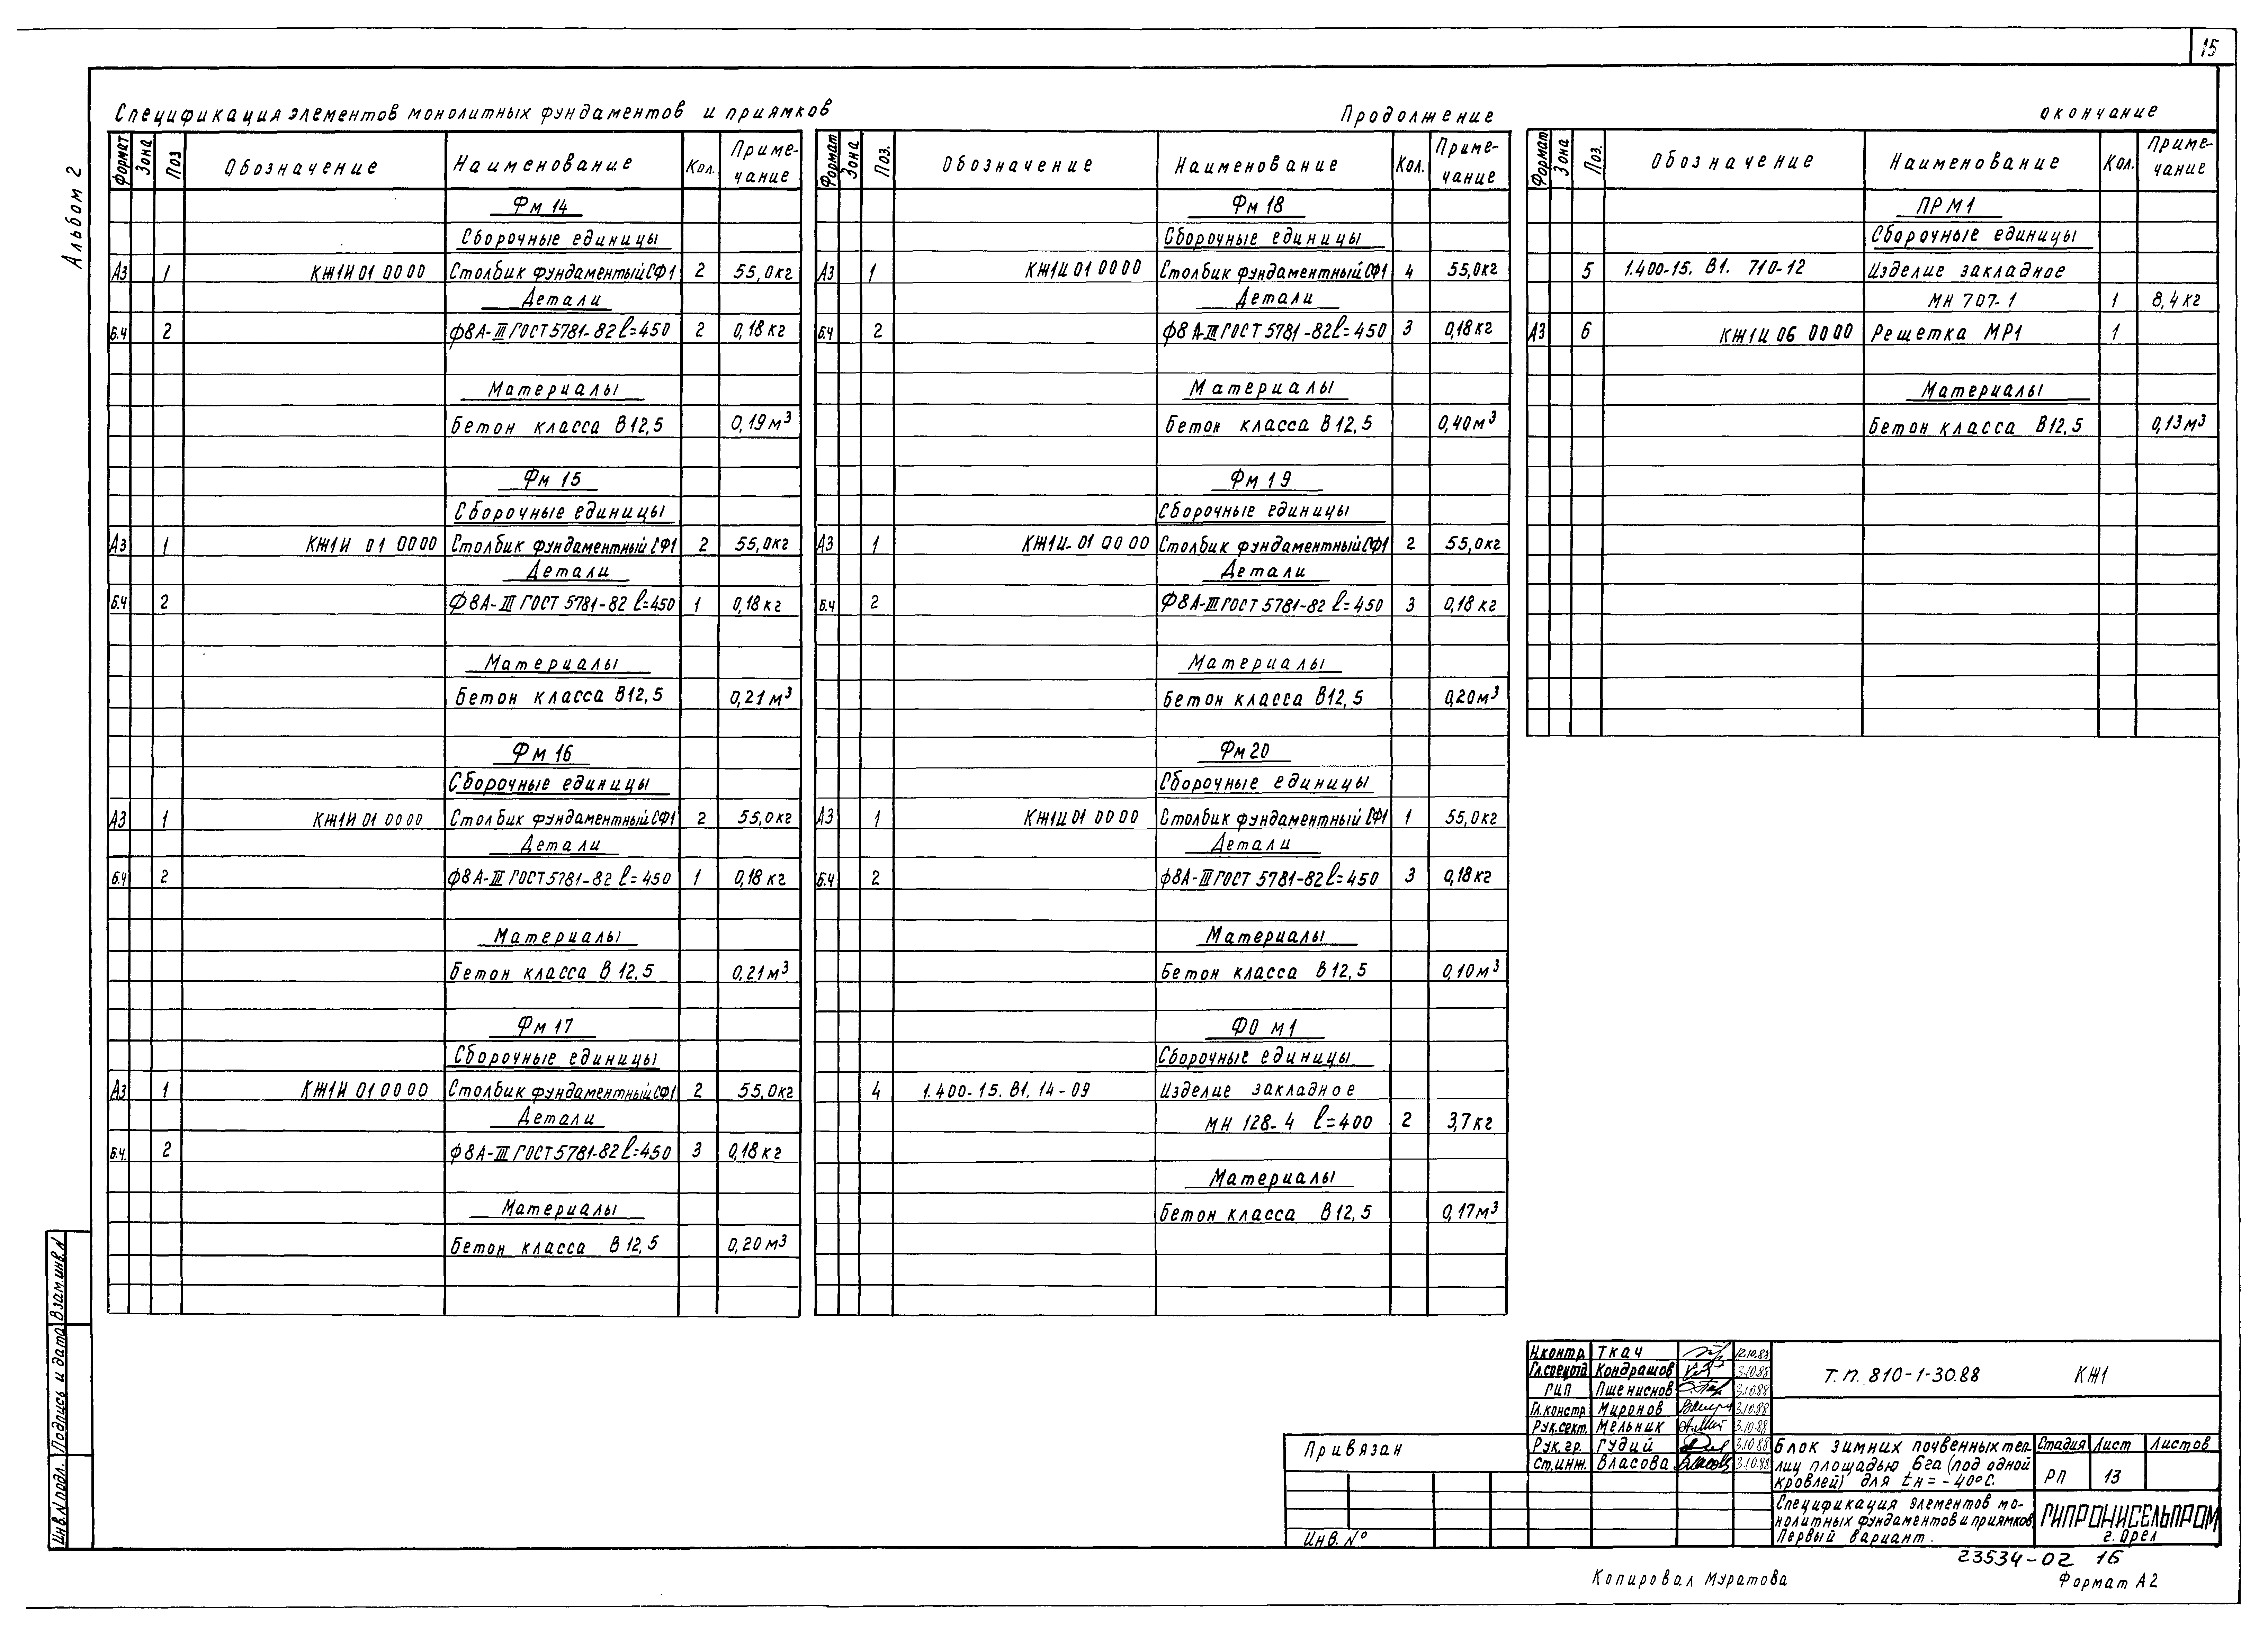 15
Альбом 2
Спецификация элементов монолитных фундаментов и приямков
Формат Зона Поз Обозначение Наименование Кол. Приме-
чание
Фм 14
Сборочные единицы
А3 1 КЖ1И 01 00 00 Столбик фундаментный СФ1 2 55,0кг
Детали
Б.Ч 2 Ф8А-III ГОСТ 5781-82 l=450 2 0,18кг
Материалы
Бетон класса В12,5 0,19м³
Фм 15
Сборочные единицы
А3 1 КЖ1И 01 00 00 Столбик фундаментный СФ1 2 55,0кг
Детали
Б.Ч 2 Ф8А-III ГОСТ 5781-82 l=450 1 0,18кг
Материалы
Бетон класса В12,5 0,21м³
Фм 16
Сборочные единицы
А3 1 КЖ1И 01 00 00 Столбик фундаментный СФ1 2 55,0кг
Детали
Б.Ч 2 Ф8А-III ГОСТ 5781-82 l=450 1 0,18кг
Материалы
Бетон класса В12,5 0,21м³
Фм 17
Сборочные единицы
А3 1 КЖ1И 01 00 00 Столбик фундаментный СФ1 2 55,0кг
Детали
Б.Ч. 2 Ф8А-III ГОСТ 5781-82 l=450 3 0,18кг
Материалы
Бетон класса В12,5 0,20м³
Продолжение
Формат Зона Поз. Обозначение Наименование Кол. Приме-
чание
Фм 18
Сборочные единицы
А3 1 КЖ1И 01 00 00 Столбик фундаментный СФ1 4 55,0кг
Детали
Б.Ч 2 Ф8А-III ГОСТ 5781-82 l=450 3 0,18кг
Материалы
Бетон класса В12,5 0,40м³
Фм 19
Сборочные единицы
А3 1 КЖ1И-01 00 00 Столбик фундаментный СФ1 2 55,0кг
Детали
Б.Ч 2 Ф8А-III ГОСТ 5781-82 l=450 3 0,18кг
Материалы
Бетон класса В12,5 0,20м³
Фм 20
Сборочные единицы
А3 1 КЖ1И 01 00 00 Столбик фундаментный СФ1 1 55,0кг
Детали
Б.Ч 2 Ф8А-III ГОСТ 5781-82 l=450 3 0,18кг
Материалы
Бетон класса В12,5 0,10м³
ФО м1
Сборочные единицы
4 1.400-15. В1. 14-09 Изделие закладное
МН 128-4 l=400 2 3,7кг
Материалы
Бетон класса В12,5 0,17м³
окончание
Формат Зона Поз. Обозначение Наименование Кол. Приме-
чание
ПРМ1
Сборочные единицы
5 1.400-15. В1. 710-12 Изделие закладное
МН 707-1 1 8,4кг
А3 6 КЖ1И 06 00 00 Решетка МР1 1
Материалы
Бетон класса В12,5 0,13м³
Инв.N подл. Подпись и дата Взам.инв.N
Н.контр. Ткач 12.10.88
Гл.спец.отд Кондрашов 3.10.88
ГИП Пшениснов 3.10.88
Гл.констр. Миронов 3.10.88
Рук.сект. Мельник 3.10.88
Рук.гр. Гудий 3.10.88
Ст.инж. Власова 3.10.88
Т.П. 810-1-30.88 КЖ1
Привязан
Инв.№
Блок зимних почвенных теп-
лиц площадью 6га (под одной
кровлей) для tн=-40°С.
Стадия Лист Листов
РП 13
Спецификация элементов мо-
нолитных фундаментов и приямков
Первый вариант.
ГИПРОНИСЕЛЬПРОМ
г. Орел
23534-02 16
Копировал Муратова Формат А2